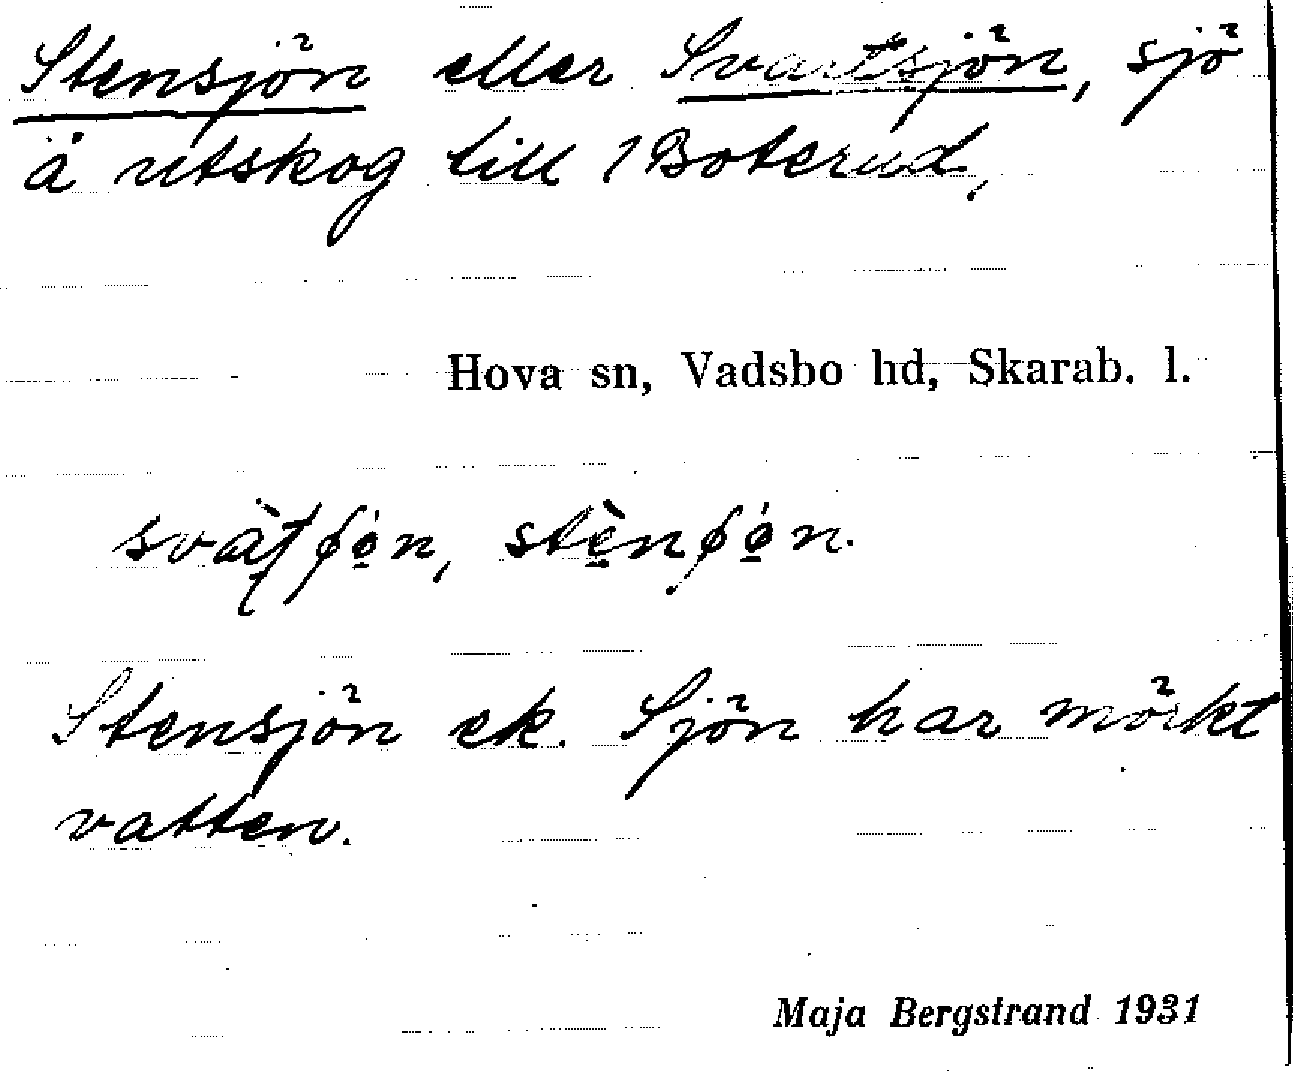 Stensjön eller Svartsjön, sjö
å utskog till Boterud,
Hova sn, Vadsbo hd, Skarab. l.
Stensjön ek. Sjön har mörkt
vatten.
Maja Bergstrand 1931